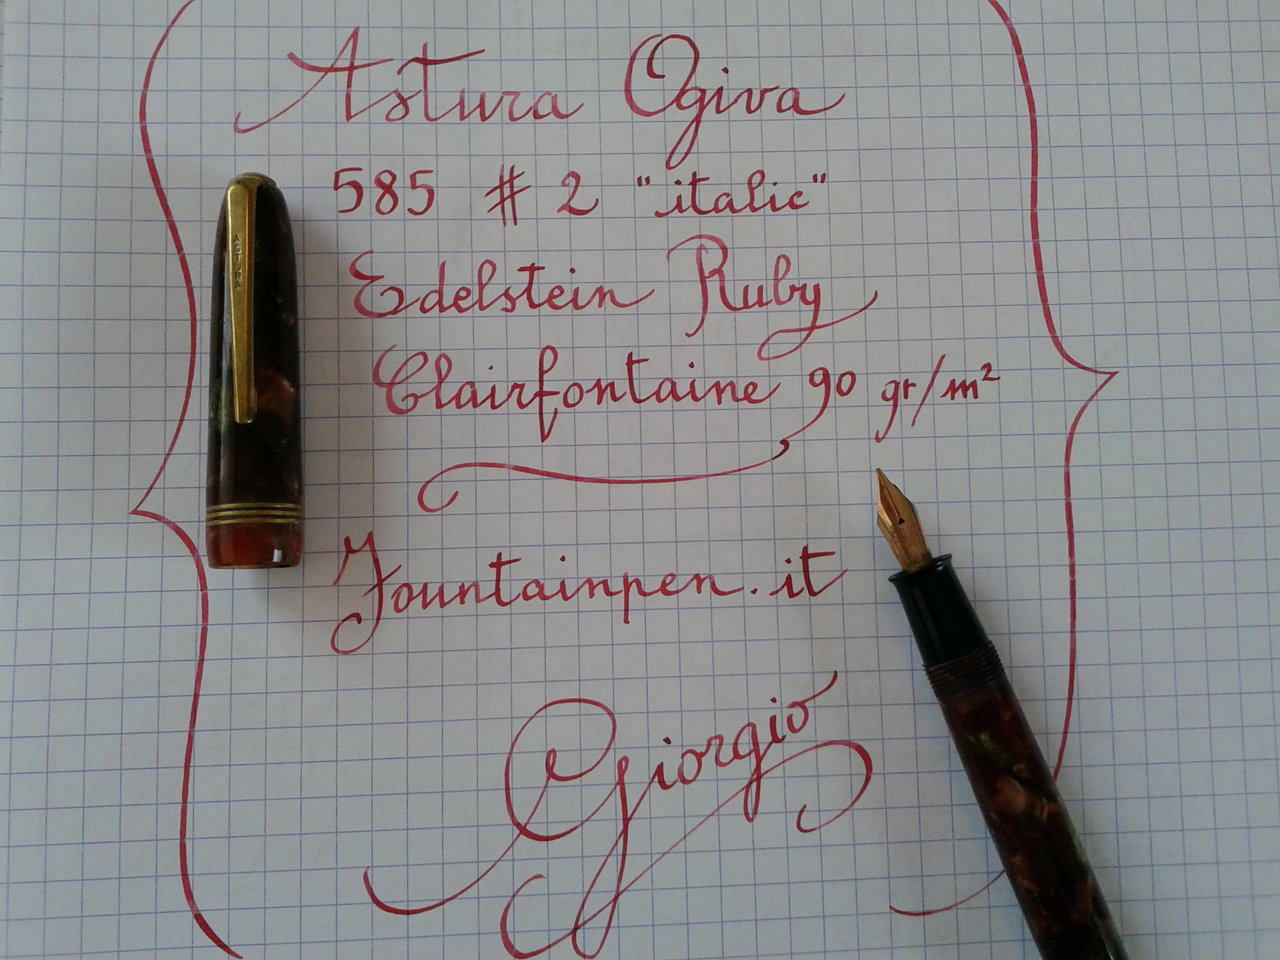 Astura Ogiva
585 # 2 "italic"
Edelstein Ruby
Clairfontaine 90 gr/m²
Fountainpen.it
Giorgio